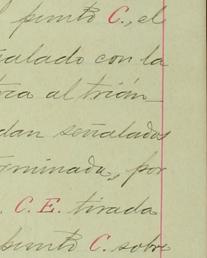 punto C., el
alado con la
al trián
dan señalados
rminada, por
C. E. tirada
punto C. sobre